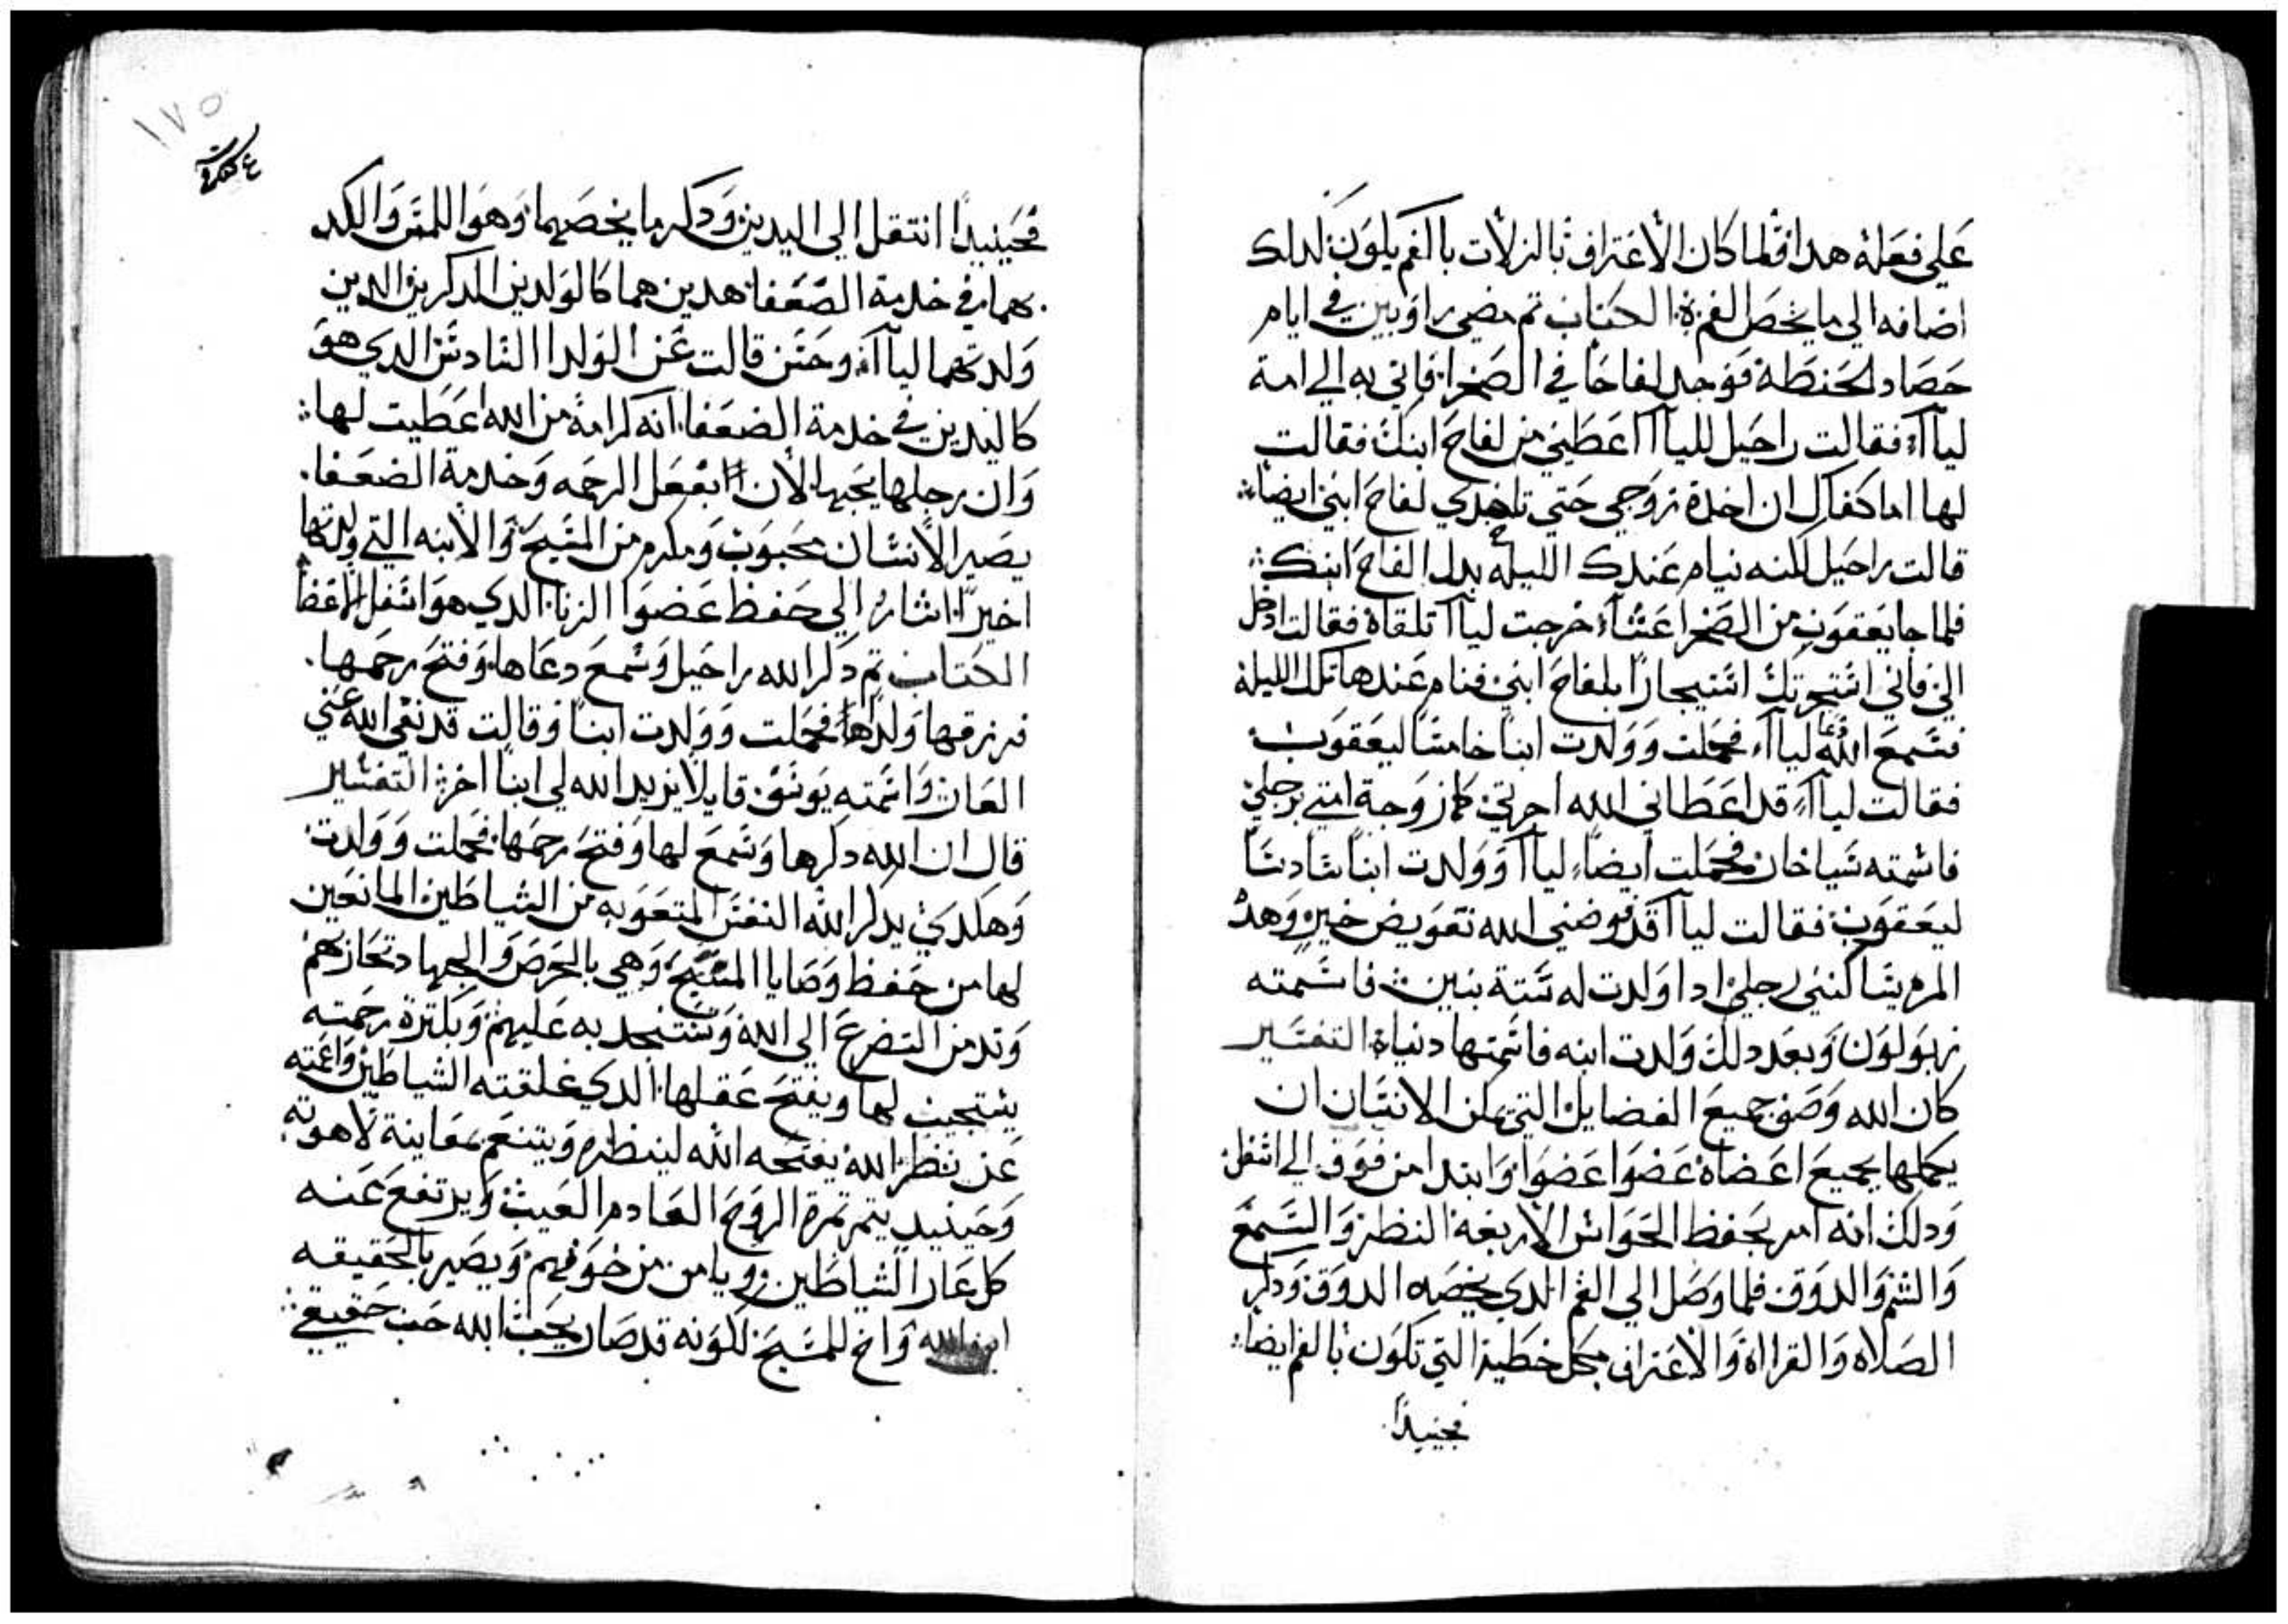 علي فعله هدا فلما كان الاعتراف بالزلات بالفم يلون لدلك
اضافه الي ما يخص الفم الكتاب تم مضي راوبين في ايام
حصاد الحنطة فوجد لفاحا في الصحرا فاتي به الي امة
لياآ فقالت راحيل للياآ اعطيني من لفاح ابنك فقالت
لها اما كفاك ان اخدة زوجي حتي تاخدي لفاح ابني ايضا
قالت راحيل لكنه نيام عندك الليلة بدل لفاح ابنك
فلما جا يعقوب من الصحرا عشاء خرجت لياآ تلقاة فقالت ادخل
الي فاني اشتجرتك اشتيجارا بلفاح ابني فنام عندها تلك الليلة
فشمع الله دعا لياآ فحملت وولدت ابنا خامسا ليعقوب
فقالت لياآ قد اعطاني الله اجرتي كا زوجة امتي برجلي
فاشمته شياخان فحملت ايضا لياآ وولدت ابنا شادشا
ليعقوب فقالت لياآ قد فوضني الله تعويض خير وهده
المره يشاكنني رجلي ادا ولدت له شتة بنين فاشمته
زبولون وبعد دلك ولدت ابنه فاشمتها دنياة التفشير
كان الله وصف جميع الفضايل التي يمكن الانشان ان
يكملها بجميع اعضاة عضوا عضوا وابتدا من فوق الي اشفل
ودلك انه امر بحفظ الحواش الاربعة النظر والشمع
والشم والدوق فلما وصل الي الفم الدي يخصه الدوق ودكر
الصلاه والقرااة والاعتراف بكل خطية التي تكون بالفم ايضا
فحينيدا
١٧٥
فحينيدا انتقل الي اليدين ودكر ما يخصهما وهو اللمش والكد
بهما في خدمة الضعفا هدين هما كالولدين الدكرين الدين
ولدتهما لياآ وحشن قالت عن الولد الشادش الدي هو
كاليدين في خدمة الضعفا انه كرامة من الله اعطيت لها
وان رجلها يحبها الان بفعل الرحمه وخدمة الضعفا
يصير الانشان محبوب ومكرم من المشيح والابنه التي ولدتها
اخيرا اشاره الي حفظ عضوا الزنا الدي هو اشفل الاعضا
الكتاب تم دكر الله راحيل وشمع دعاها وفتح رحمها
ورزقها ولدا فحملت وولدت ابنا وقالت قد نفي الله عني
العار واشمته يوشف قايلا يزيد الله لي ابنا اخر التفشير
قال ان الله دكرها وشمع لها وفتح رحمها فحملت وولدت
وهكدي يدكر الله النفش المتعوبه من الشياطين المانعين
لها من حفظ وصايا المشيح وهي بالحرص والجهاد تحاربهم
وتدمن التضرع الي الله وتشتنجد به عليهم وبكترة رحمته
يشتجيب لها ويفتح عقلها الدي غلقته الشياطين واعمته
عن نظر الله يفتحه الله لينظره ويتنعم بمعاينة لاهوته
وحينيد يتمر تمرة الروح العادم العيب ويرتفع عنه
كل عار الشياطين ويامن من خوفهم ويصير بالحقيقه
ابن الله واخ للمشيح لكونه قد صار يحب الله حب حقيقي